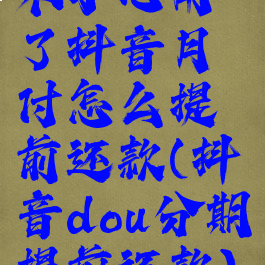 了抖音月
付怎么提
前还款(抖
音dou分期
提前还款)